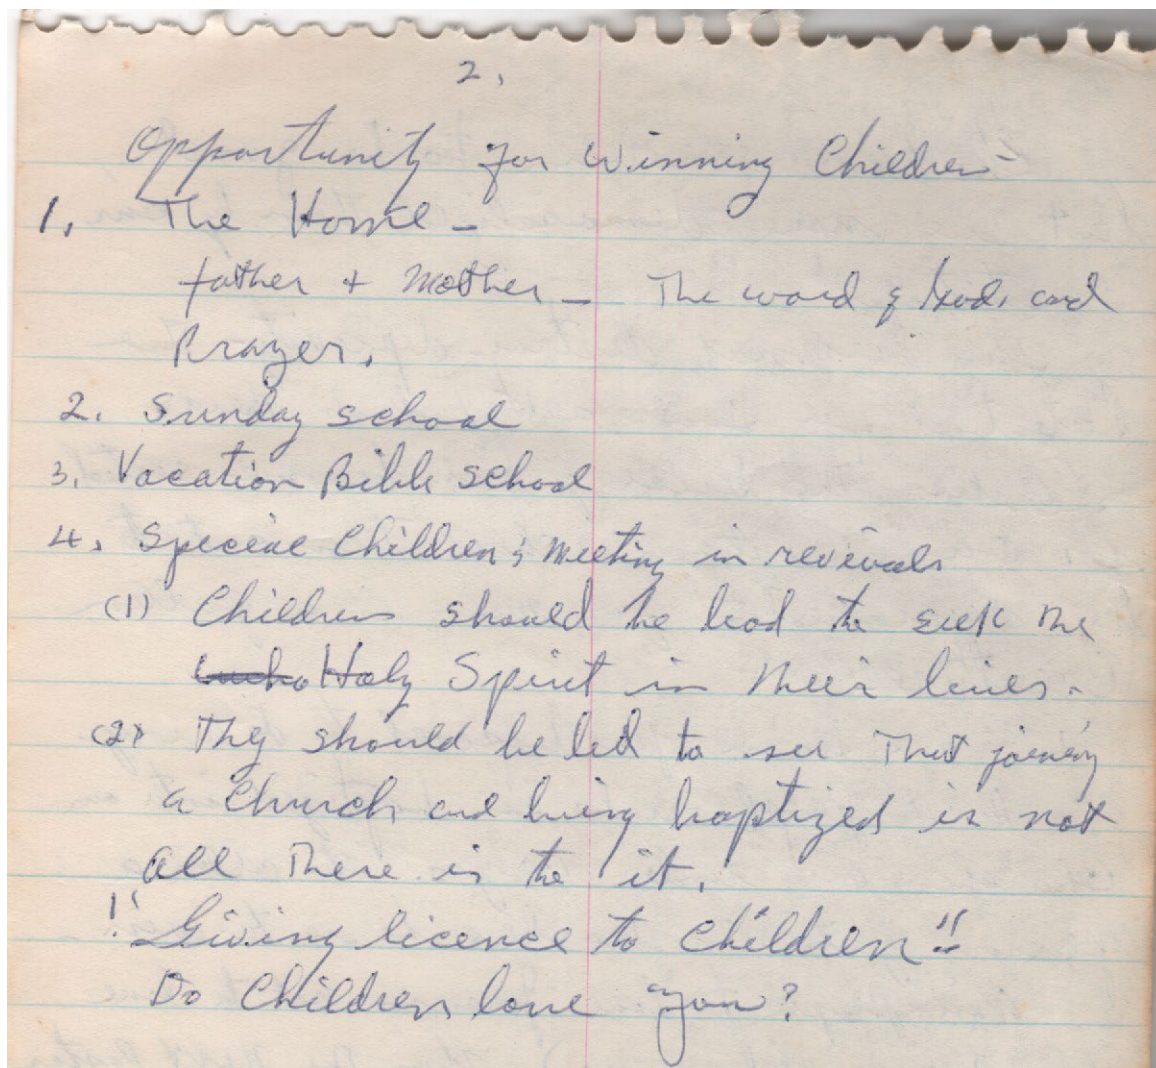 2.
Opportunity for Winning Children -
1. The Home -
father + Mother - The word of God, and
Prayer.
2. Sunday school
3. Vacation Bible school
4. Special Children's meeting in revivals
(1) Children should be lead to seek the
Holy Spirit in their lives.
(2) They should be led to see that joining
a church and being baptized is not
all there is to it.
"Giving licence to children"
Do Children love you?